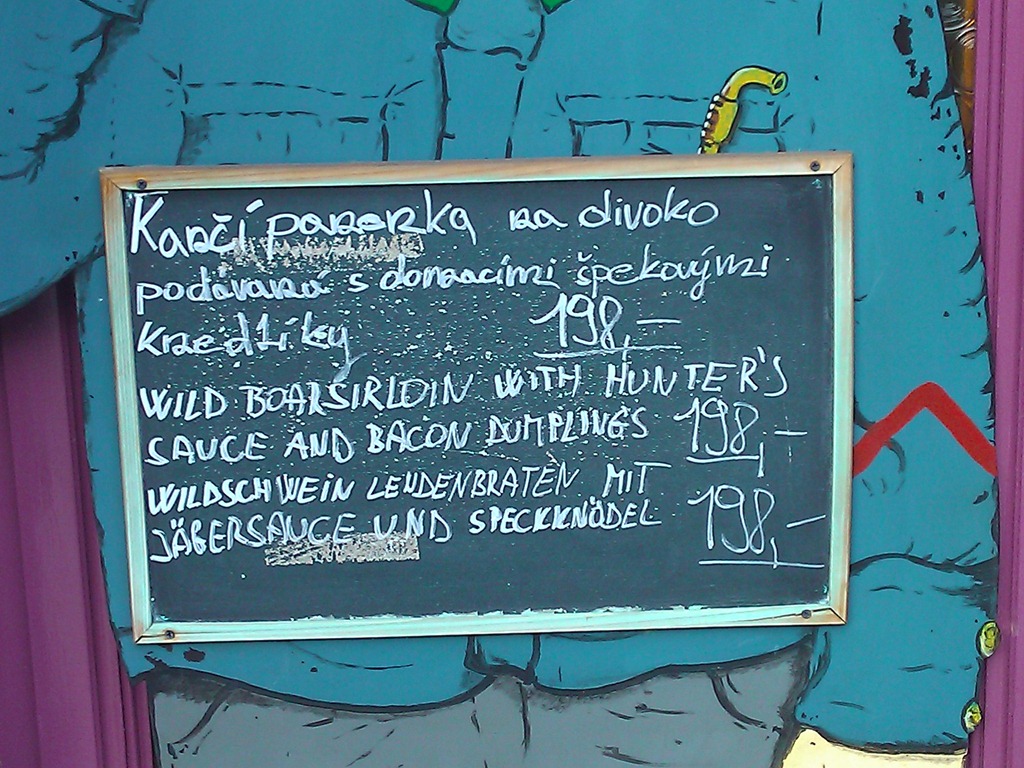 Kančí panenka na divoko
podávaná s domacími špekovými
knedlíky 198,-
WILD BOARSIRLOIN WITH HUNTER'S
SAUCE AND BACON DUMPLINGS 198,-
WILDSCHWEIN LENDENBRATEN MIT
JÄGERSAUCE UND SPECKKNÖDEL 198,-